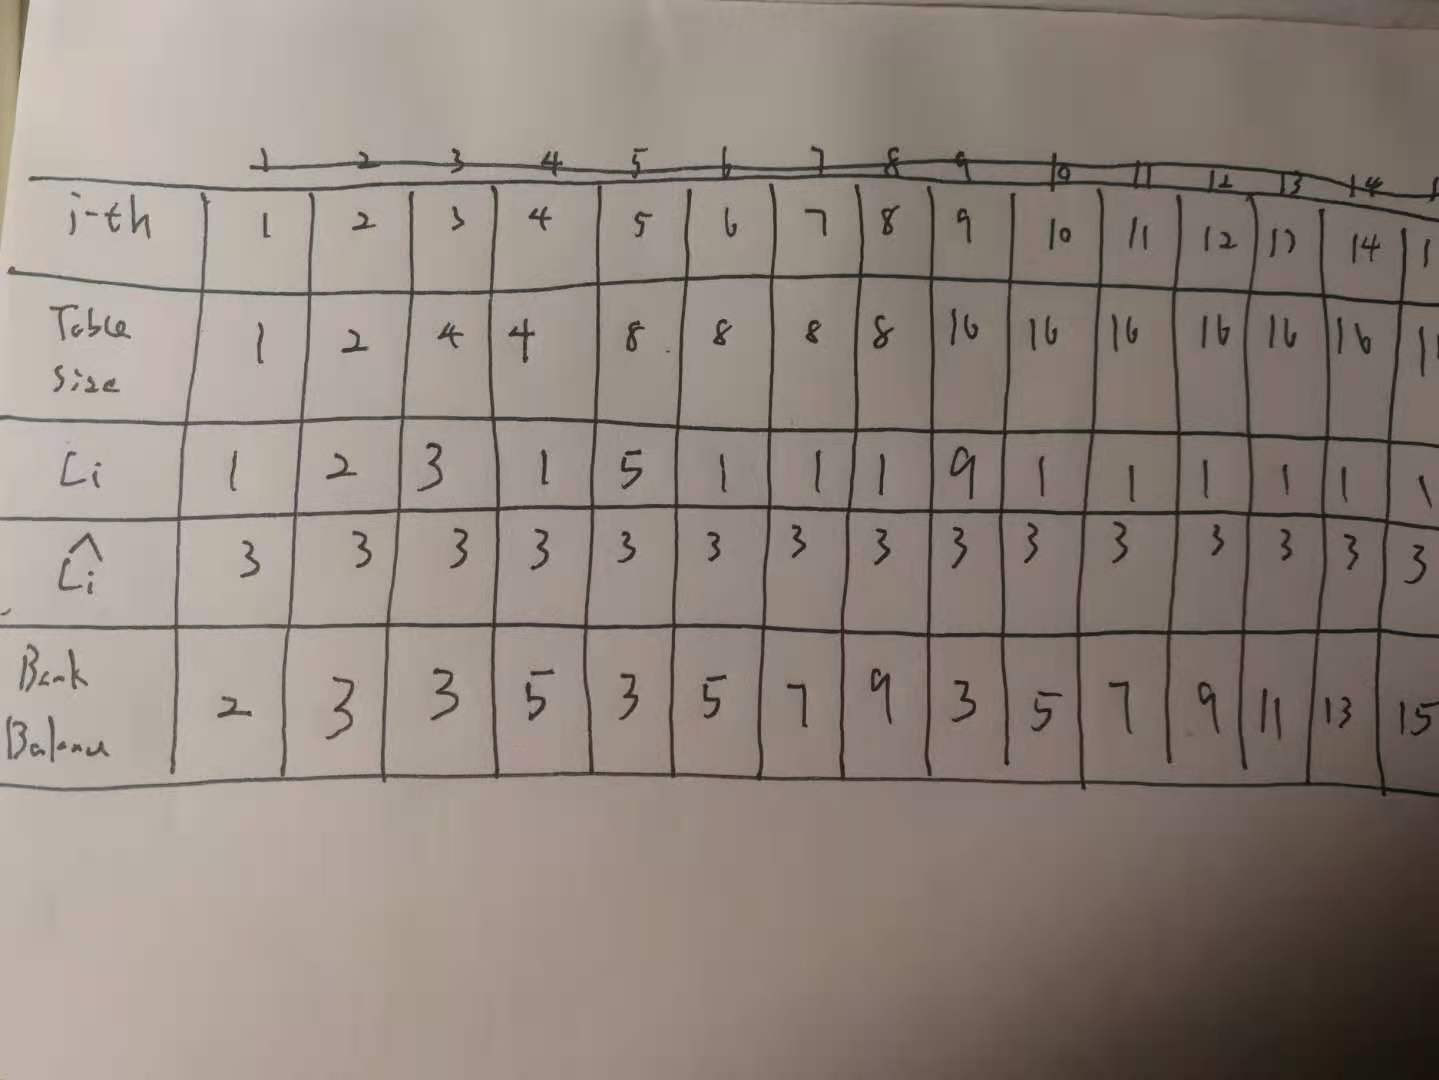 1 2 3 4 5 6 7 8 9 10 11 12 13 14
i-th 1 2 3 4 5 6 7 8 9 10 11 12 13 14 1
Table size 1 2 4 4 8 8 8 8 16 16 16 16 16 16 1
Ci 1 2 3 1 5 1 1 1 9 1 1 1 1 1 1
Ĉi 3 3 3 3 3 3 3 3 3 3 3 3 3 3 3
Bank Balance 2 3 3 5 3 5 7 9 3 5 7 9 11 13 15